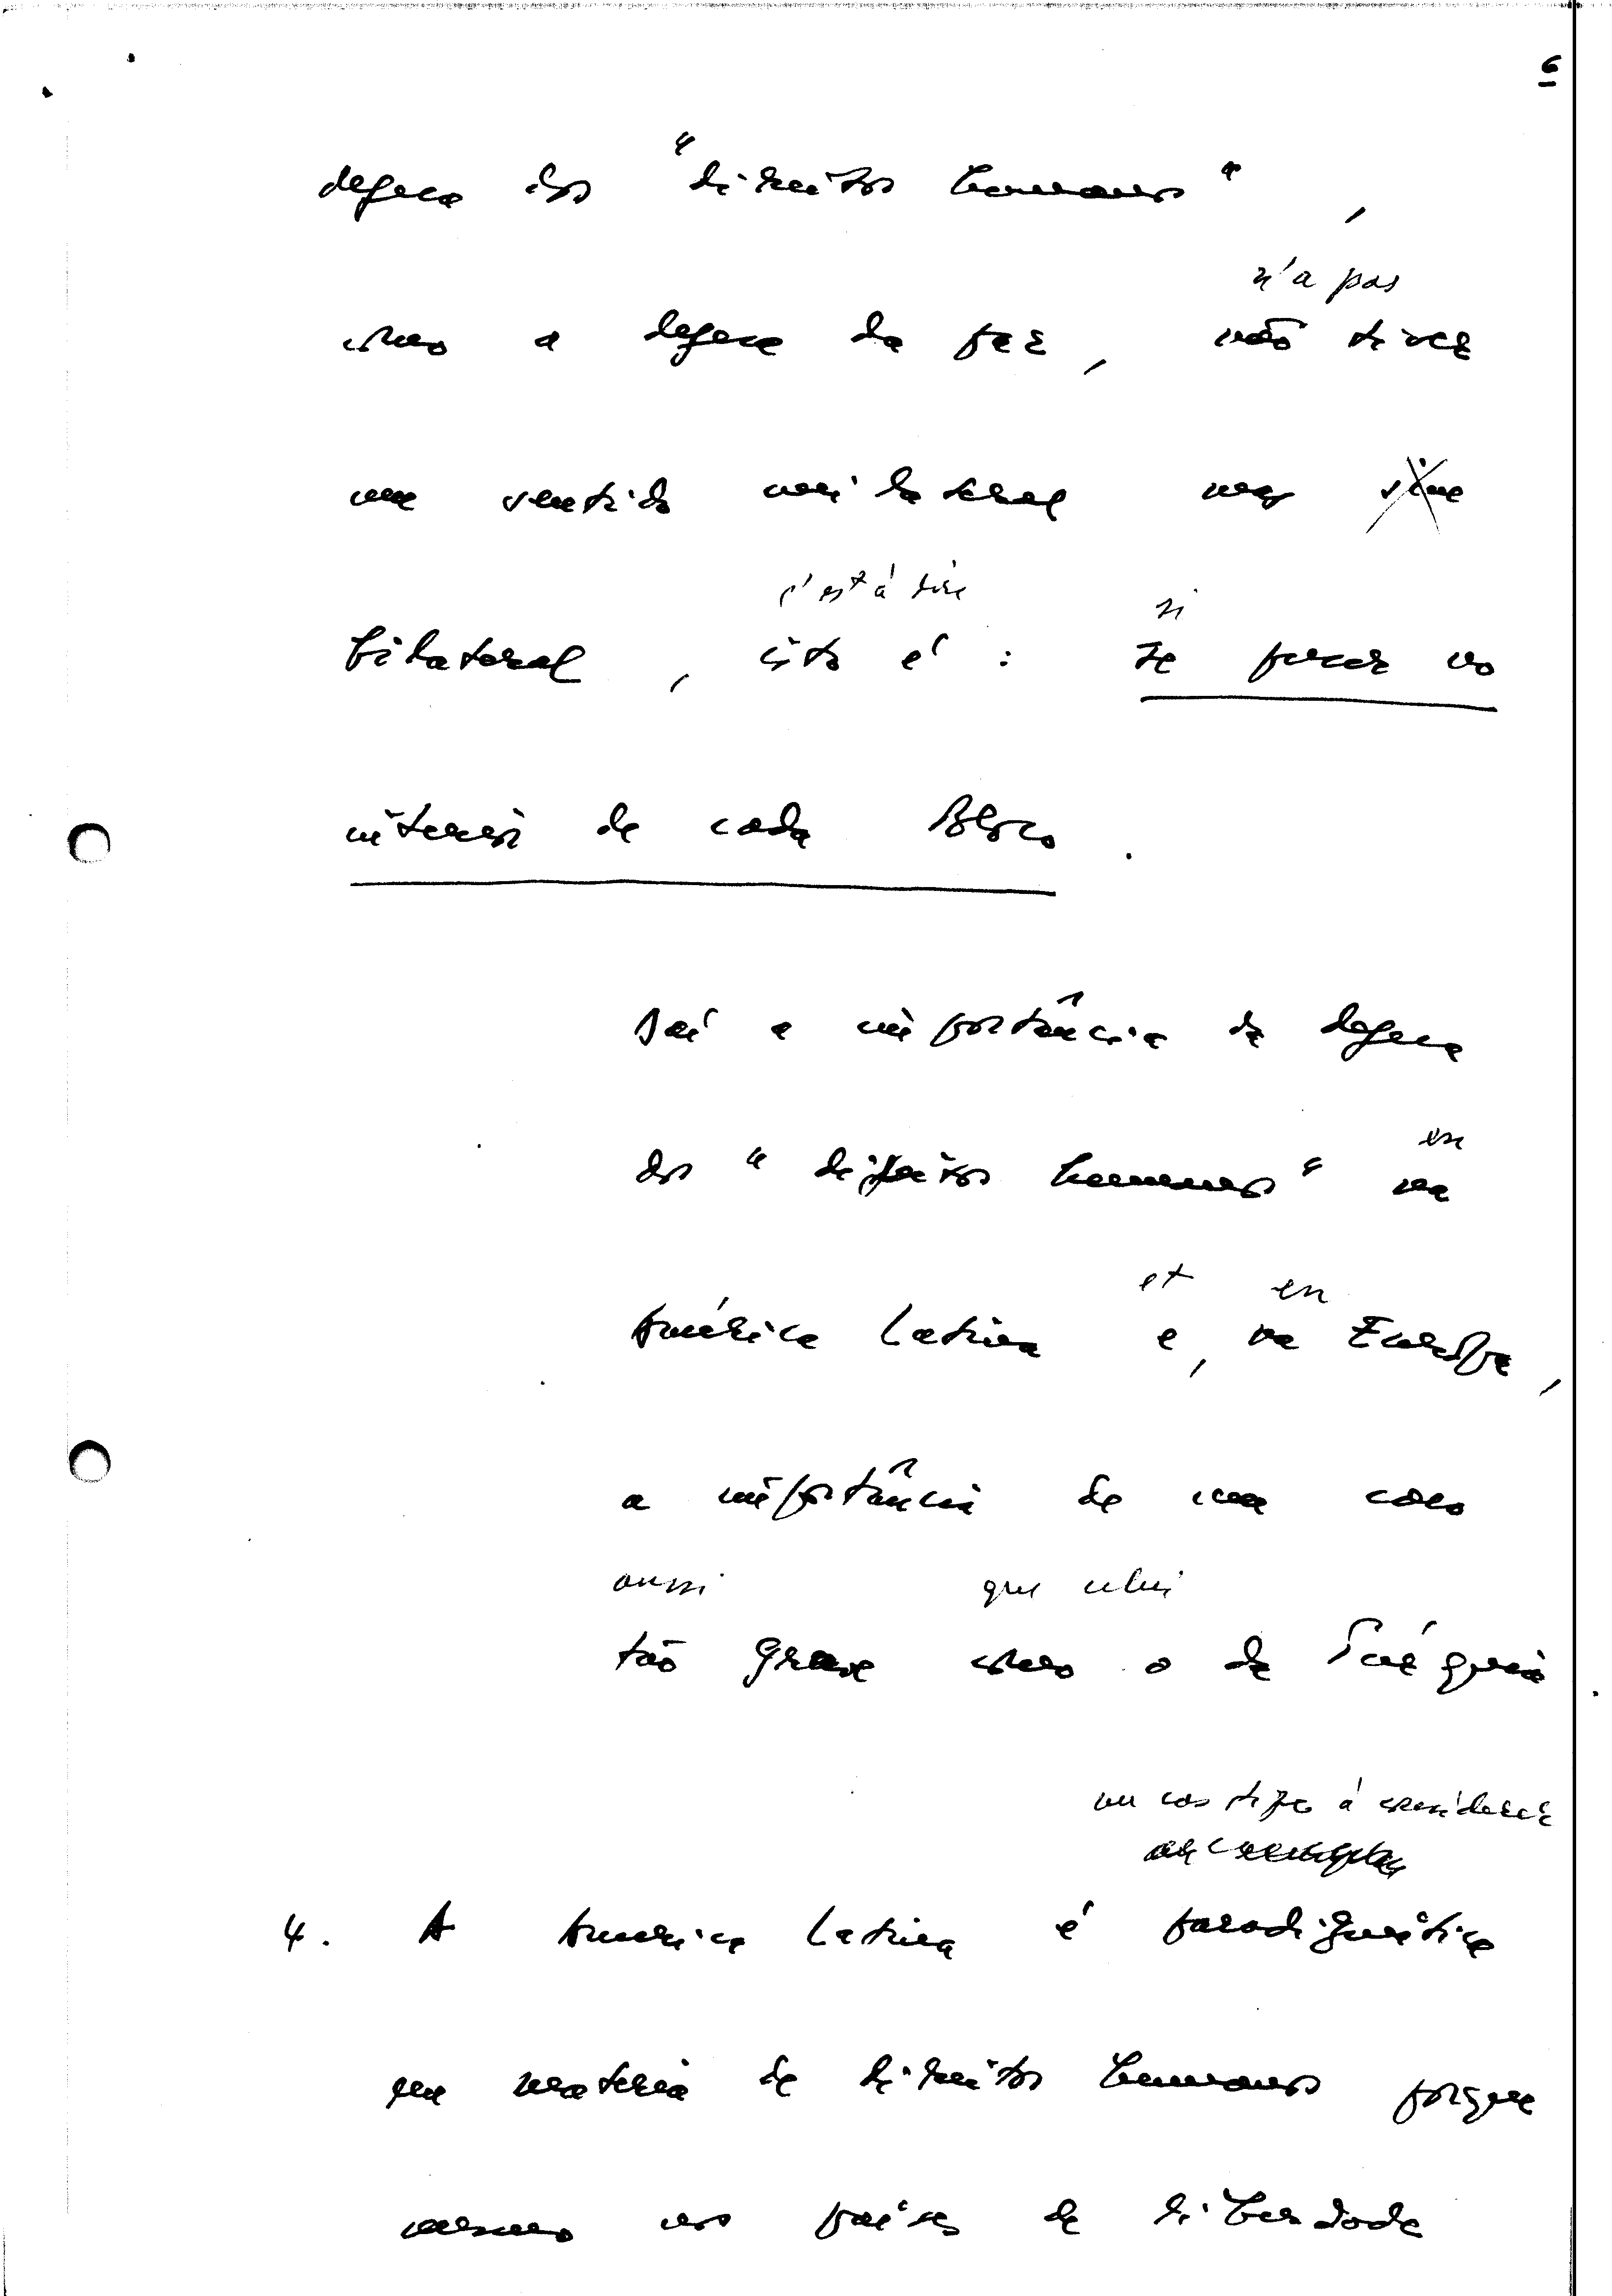 6
defesa dos "direitos humanos",
n'a pas
como a defesa da paz, não tiver
um sentido unilateral mas
c'est à dire si
bilateral, isto é : se fizer no
interior de cada Bloco.
Daí a importância da defesa
en
dos "direitos humanos" na
et en
América Latina e, na Europa,
a importância de um caso
aussi que celui
tão grave como o da Turquia
un cas type à considerer
4. A América Latina é paradigmática
em matéria de direitos humanos porque
mesmo nos países de liberdade